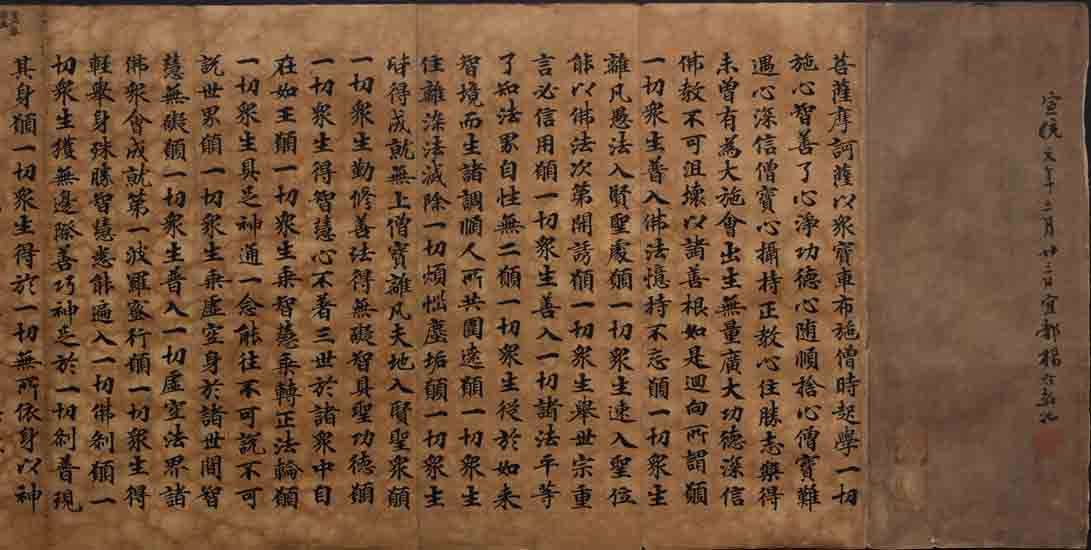 宣統元年三月廿三日宜都楊守敬記
菩薩摩訶薩以衆寶車布施僧時起學一切
施心智善了心淨功德心随順捨心僧寶難
遇心深信僧寶心攝持正教心住勝志樂得
未曾有為大施會出生無量廣大功德深信
佛教不可沮壞以諸善根如是迴向所謂願
一切衆生普入佛法憶持不忘願一切衆生
離凡愚法入賢聖處願一切衆生速入聖位
能以佛法次第開誘願一切衆生舉世宗重
言必信用願一切衆生善入一切諸法平等
了知法界自性無二願一切衆生從於如来
智境而生諸調順人所共圍遶願一切衆生
住離染法滅除一切煩惱塵垢願一切衆生
皆得成就無上僧寶離凡夫地入賢聖衆願
一切衆生勤修善法得無礙智具聖功德願
一切衆生得智慧心不著三世於諸衆中自
在如王願一切衆生乘智慧乘轉正法輪願
一切衆生具足神通一念能往不可說不可
說世界願一切衆生乘虛空身於諸世間智
慧無礙願一切衆生普入一切虛空法界諸
佛衆會成就第一波羅蜜行願一切衆生得
輕舉身殊勝智慧悉能遍入一切佛刹願一
切衆生獲無邊際善巧神足於一切刹普現
其身願一切衆生得於一切無所依身以神